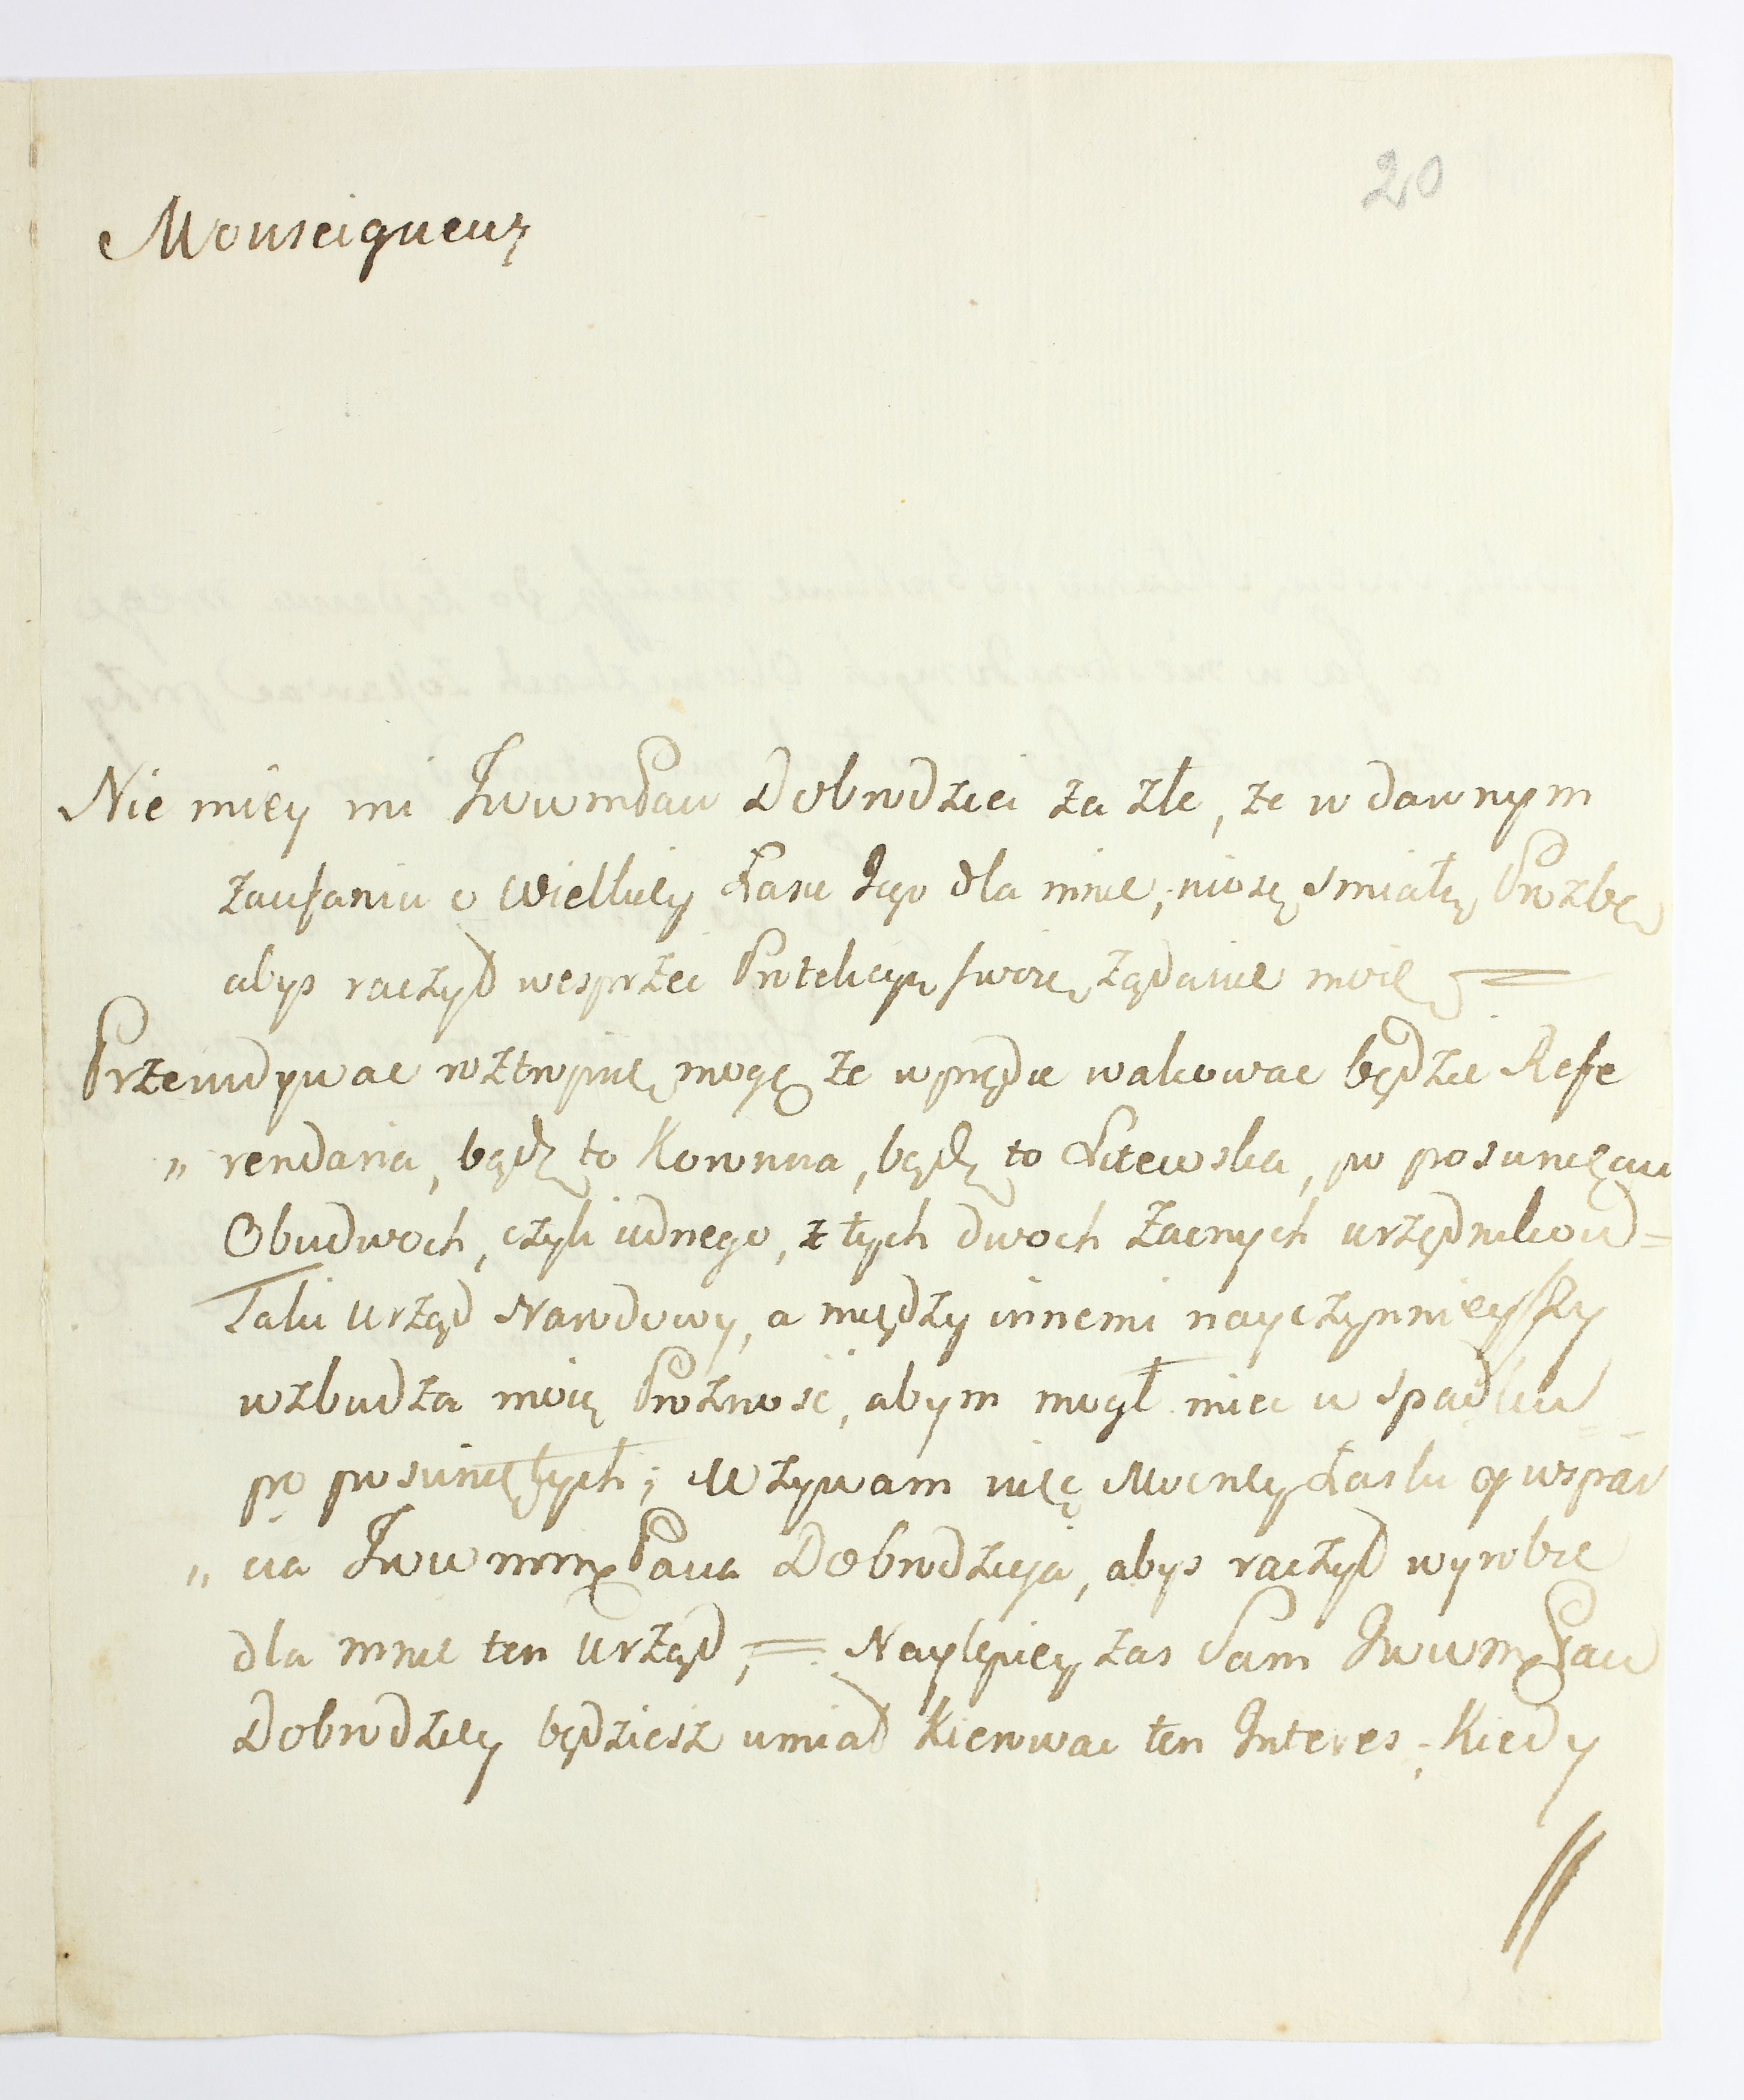 20
Monseigneur
Nie miey mi JwwmPan Dobrodziei za złe, że w dawnym
zaufaniu o Wielkiey Łasce Jego dla mnie, niosę smiałą Prozbę
abys raczył wesprzeć Protekcyą swoię żądanie moię =
Przewidywac roztropnie mogę że wprędce wakowac będzie Refe
„ rendaria, bądź to Koronna, bądź to Litewska, po posunięciu
Obudwoch, czyli iednego, z tych dwoch Zacnych urzędnikow =
Taki Urząd Narodowy, a między innemi nayczynnieyszy
wzbudza moią Prożność, abym mogł miec w spadku
po posuniętych; Wzywam więc Mocney Łaski y wspar
„ cia Jwwmm Pana Dobrodzieja, abys raczył wyrobic
dla mnie ten Urząd, = Naylepiey zas Sam Jwwm Pan
Dobrodziey będziesz umiał kierowac ten Interes, Kiedy